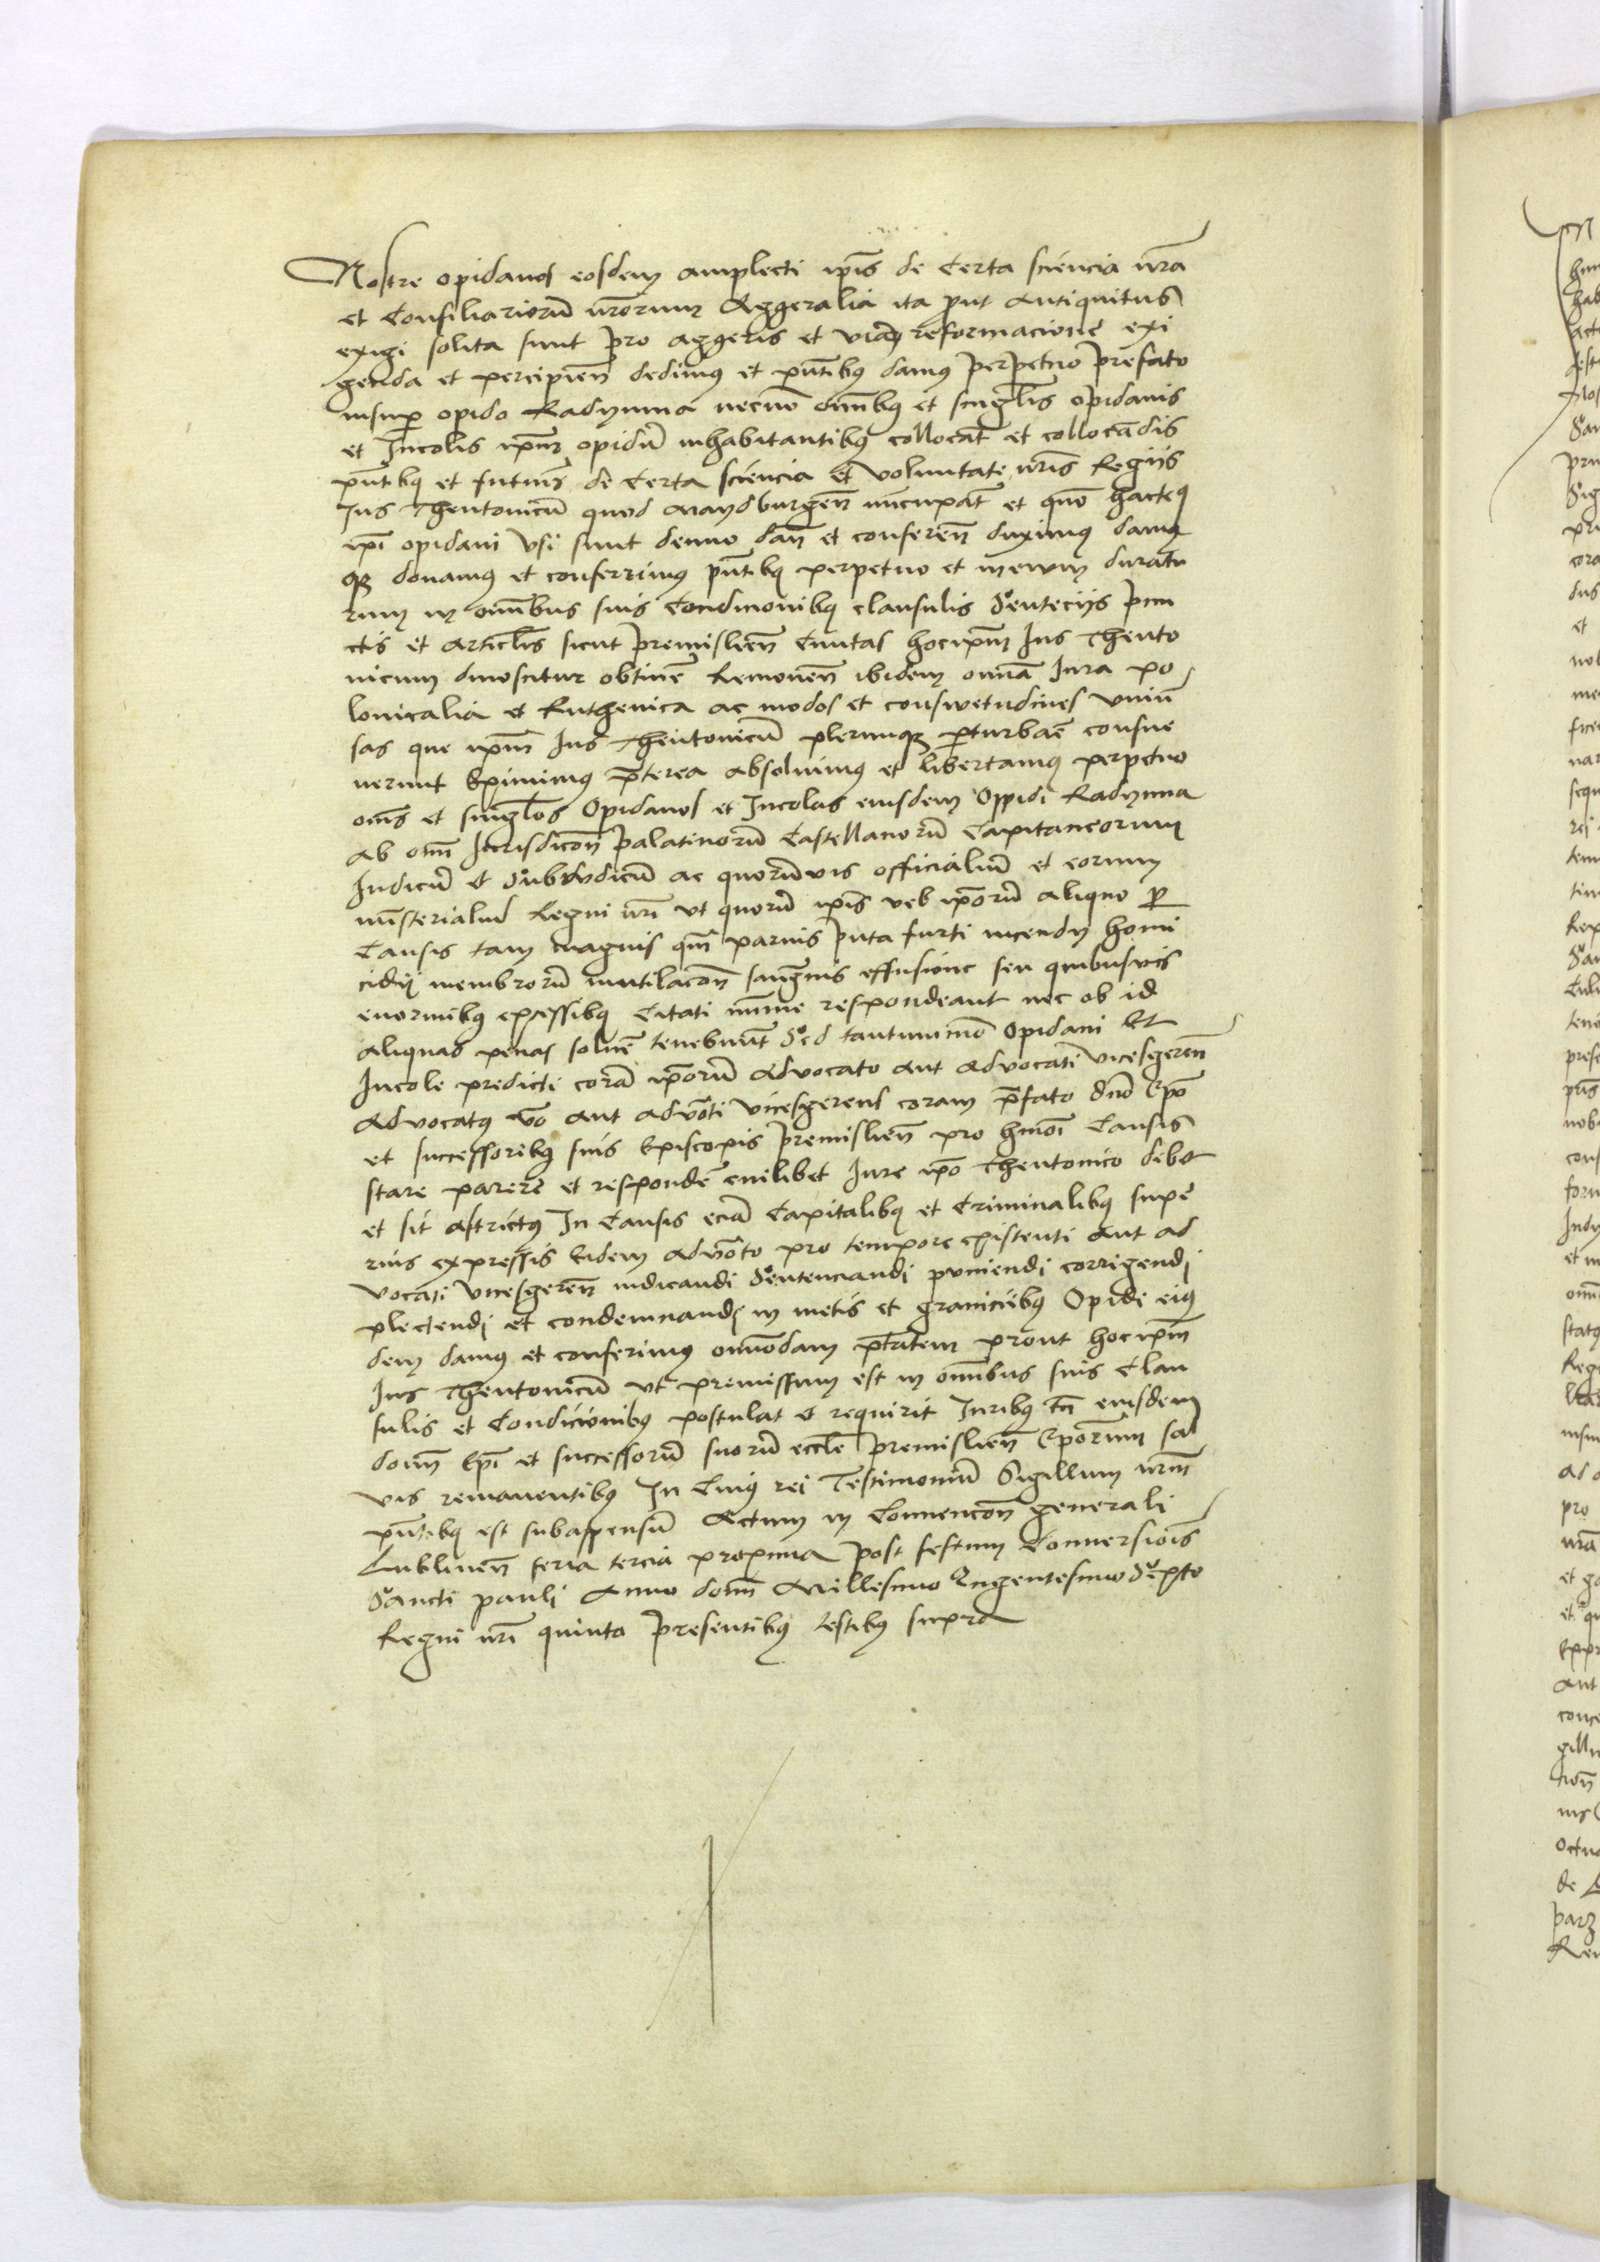 Nostre opidanos eosdem amplecti ip̄is de Certa sciencia nr̄a
et Consiliariorū nr̄orum Aggeralia ita prout Antiquitus
exigi solita sunt pro aggeris et viarum reformacione exi
genda et percipien̄ dedimus et pn̄tibus damus perpetuo prefato
insuper opido Radymna necnon om̄ibus et singl̄is opidanis
et Incolis ip̄um opidū inhabitantibus collocat̄ et collocādis
pn̄tibus et futuris de Certa sciencia et voluntate nr̄is Regiis
Ius Theutonicū quod Maydburgen̄ nūcupat̄ et quo hactenus
ip̄i opidani vsi sunt denuo dan̄ et conferen̄ duximus damus
que donamus et conferrimus pn̄tibus perpetuo et in ewm duratu
rum in om̄ibus suis Condicionibus clausulis Sentēciis pun
ctis et articl̄is sicut premislien̄ Ciuitas hocip̄um Ius Theuto
nicum dinoscitur obtinēr Remouen̄ ibidem om̄ia Iura po
lonicalia et Ruthenica ac modos et consuetudines vniū
sas que ip̄um Ius Theutonicū plerumque perturbar̄ consue
uerunt Eximimus preterea absoluimus et libertamus perpetuo
om̄s et singl̄os Opidanos et Incolas eiusdem Oppidi Radymna
Ab om̄i Iurisdicōn palatinorū Castellanorū Capitaneorum
Iudicū et Subiudicū ac quorūuis officialiū et eorum
ministerialiū Regni nr̄i vt quorū ip̄is ueb ip̄orū aliquo pro
Causis tam magnis quā paruis puta furti incendij homi
cidij membrorū mutilacōn sangwinis effusione seu quibusuis
enormibus excessibus Citati minime respondeant nec ob id
aliquas penas soluer̄ tenebūnt Sed tantūmmō Opidani Et
Incole predicti corā ip̄orū Advocato aut Advocati vicesgeren̄
Advocatus v̄o aut advōti vicesgerens coram p̄fato dn̄o Ep̄o
et Successoribus suis Episcopis premislien̄ pro hm̄oi Causis
stare parere et respondēr cuilibet Iure ip̄o Theutonico debet
et sit astrictus In Causis eciā Capitalibus et Criminalibus supe
rius expressis Eidem advōto pro tempore existenti aut ad
vocati vicesgeren̄ iudicandi Sentenciandi puniendi corrigendi
plectendi et condemnandi in metis et graniciebus Opidi eius
dem damus et conferimus om̄modam pt̄atem prout hocip̄um
Ius Theutonicū vt premissum est in om̄ibus suis Clau
sulis et Condicionibus postulat et requirit Iuribus tn̄ eiusdem
domini Ep̄i et successorū suorū eccl̄e premislien̄ Ep̄orum sal
vis remanentibus In Cuius rei Testimoniū Sigillum nr̄um
pn̄tibus est subappensū Actum in Conuencōn generali
Lublinen̄ feria tercia proxima post festum Conuersiois
Sancti pauli Anno domī Millesimo Quingentesimo Sexto
Regni nr̄i quinto presentibus testibus supra